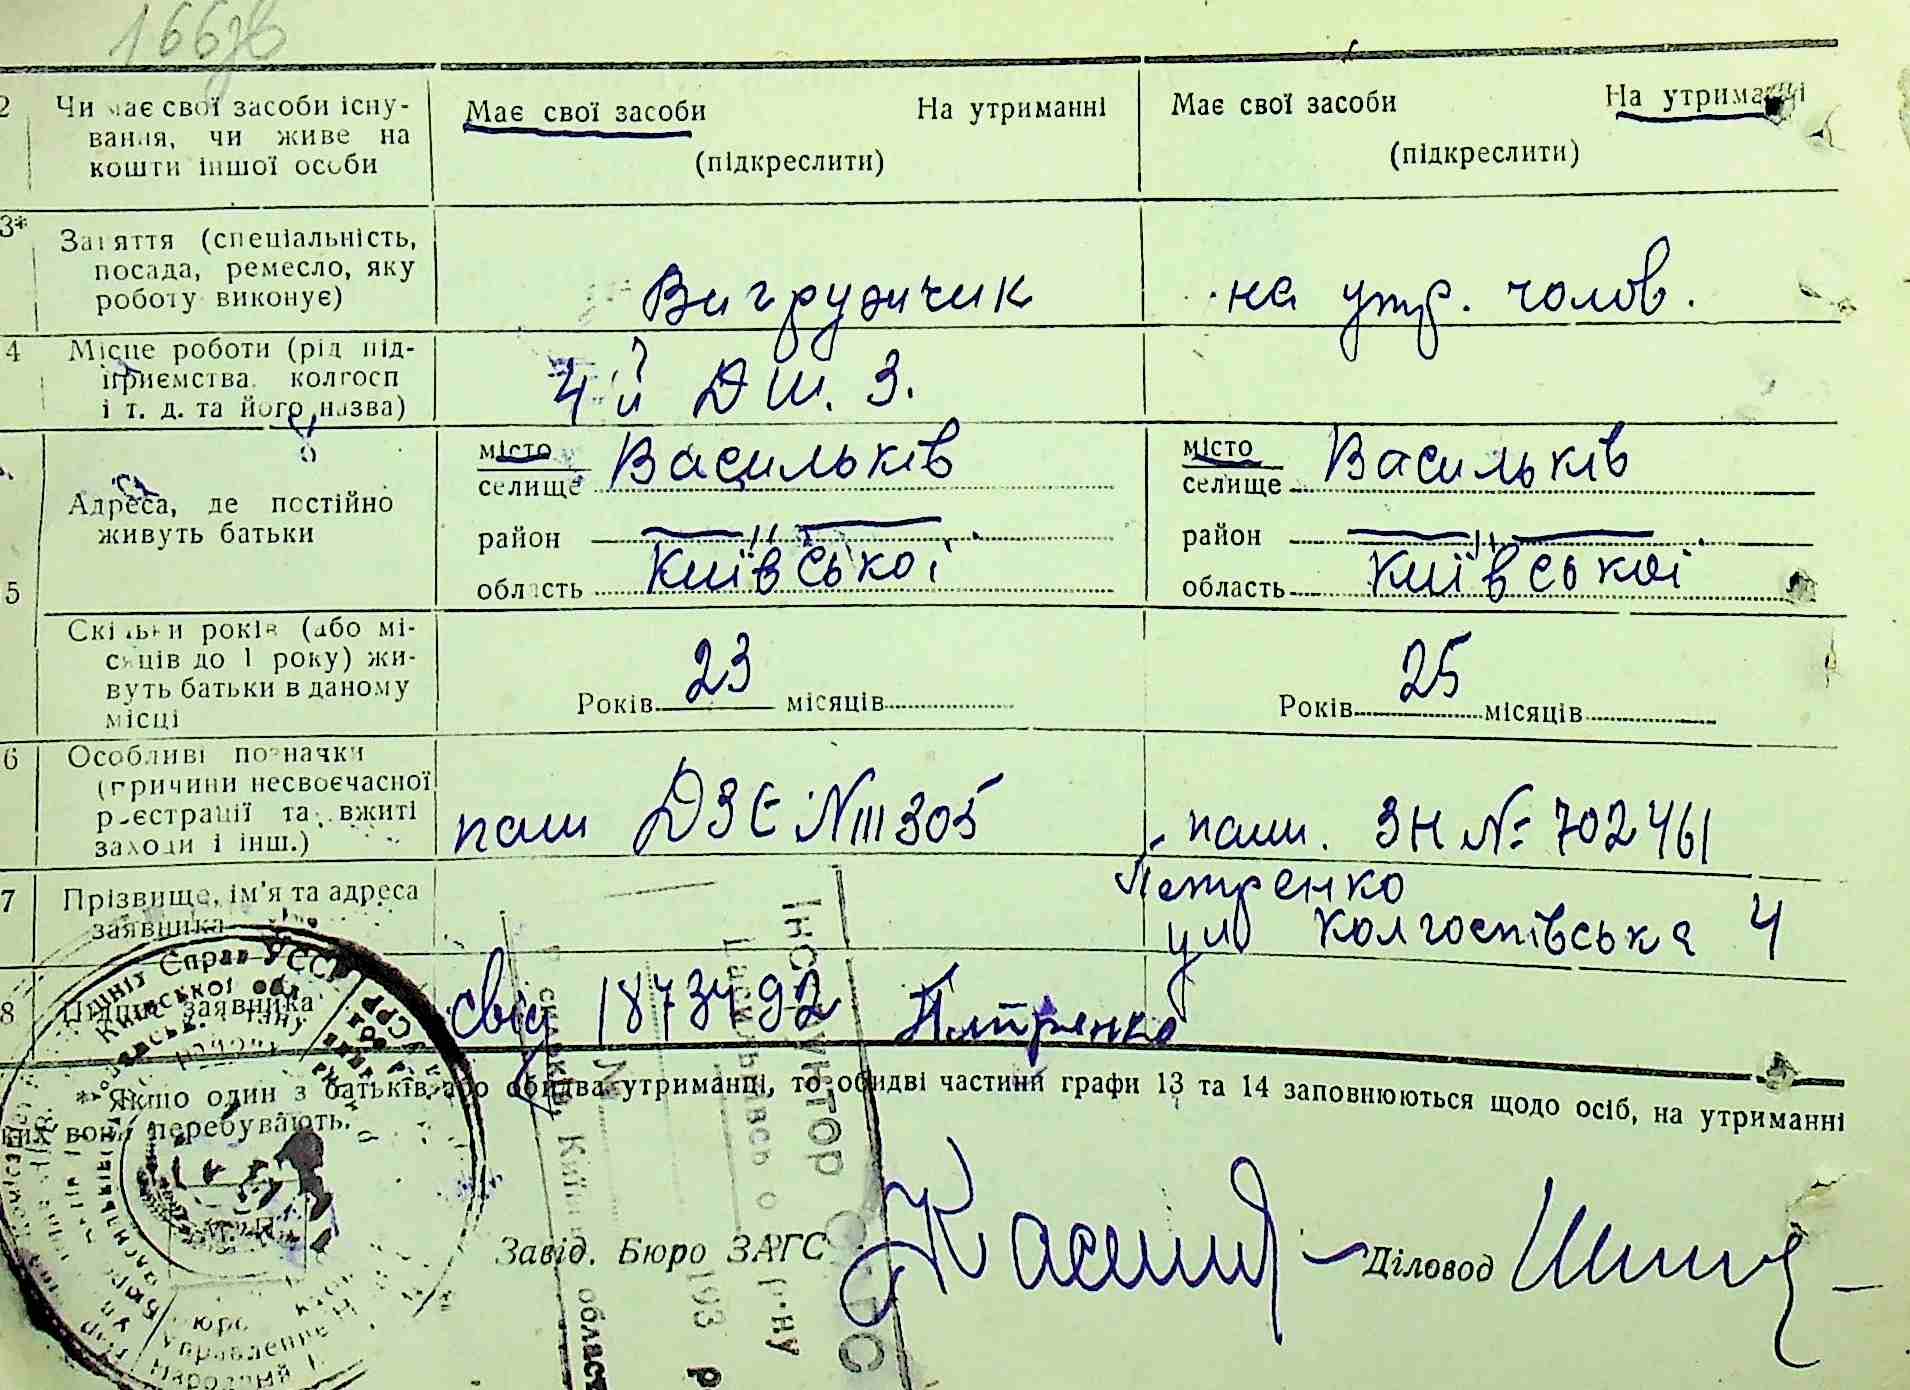 166
2 Чи має свої засоби існу-
вання, чи живе на
кошти іншої особи
Має свої засоби На утриманні
(підкреслити)
Має свої засоби На утриманні
(підкреслити)
3* Заняття (спеціальність,
посада, ремесло, яку
роботу виконує)
Вигрузчик
на утр. чолов.
4 Місце роботи (рід під-
приємства, колгосп
і т. д. та його назва)
4й ДШ. З.
5 Адреса, де постійно
живуть батьки
місто Васильків
селище
район —〃—
область Київської
місто Васильків
селище
район —〃—
область Київської
Скільки років (або мі-
сяців до 1 року) жи-
вуть батьки в даному
місці
Років 23 місяців
Років 25 місяців
6 Особливі позначки
(причини несвоєчасної
реєстрації та вжиті
заходи і інш.)
паш ДЗЄ № 111305
паш. ЗН № 702461
7 Прізвище, ім'я та адреса
заявника
Петренко
ул Колгоспівська 4
8 Підпис заявника
свід 1873492 Петренко
* Якщо один з батьків або обидва утриманці, то обидві частини графи 13 та 14 заповнюються щодо осіб, на утриманні
яких вони перебувають.
Завід. Бюро ЗАГС
Діловод
Інспектор ЗАГС
193 р